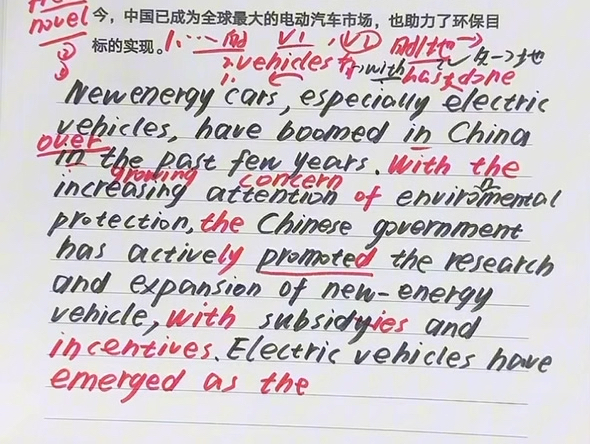 novel 今，中国已成为全球最大的电动汽车市场，也助力了环保目
标的实现。
vehicles with has done
New energy cars, especially electric
vehicles, have boomed in China
over
in the past few years. With the
growing concern
increasing attention of enviromental
n
protection, the Chinese government
has actively promoted the research
and expansion of new-energy
vehicle, with subsidyies and
incentives. Electric vehicles have
emerged as the